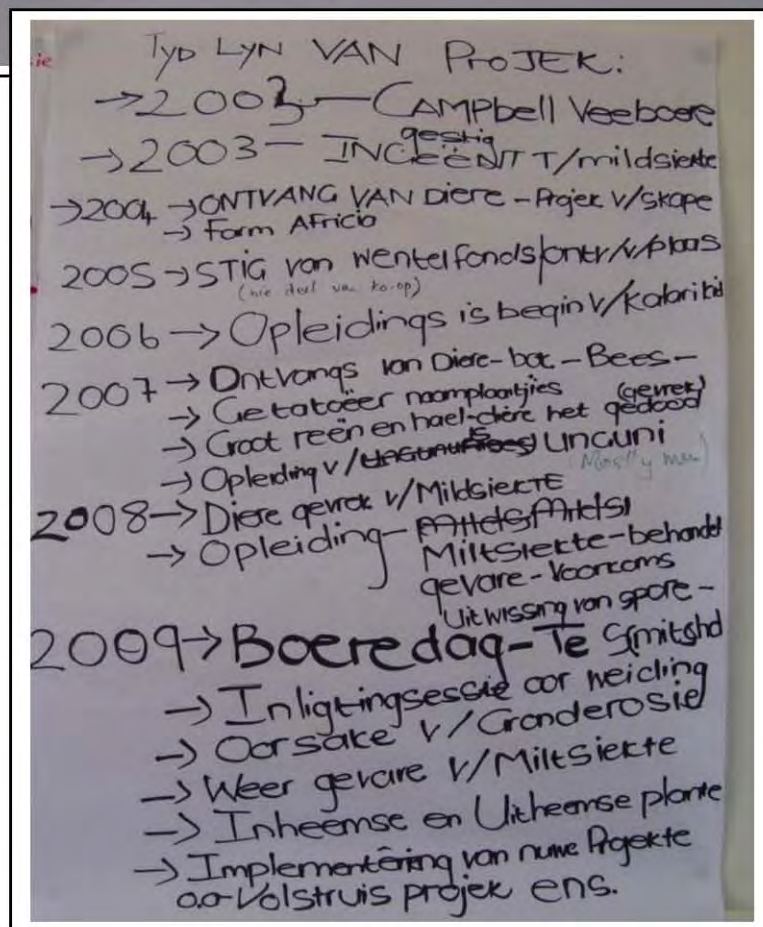 ie
TYD LYN VAN PROJEK:
→ 2003 — CAMPbell Veeboere
gestig
→ 2003 — INGEËNT T/mildsiekte
→ 2004 → ONTVANG VAN Diere - Projek v/skape
→ Farm Africia
2005 → STIG van wentelfonds/ontv/v/plaas
(nie deel van ko-op)
2006 → Opleidings is begin v/Kalari
2007 → Ontvangs van Diere - bok - Bees -
→ Getatoëer naamplaatjies (gevrek)
→ Groot reën en hael - diere het gedood
→ Opleiding v/ is Unguni
(Mostly men)
2008 → Diere gevrek v/MildsiekTE
→ Opleiding -
MiltsieKte - behandel
gevare - Voorkoms
Uitwissing van spore -
2009 → Boeredag - Te Smitshd
→ Inligtingsessie oor weiding
→ Oorsake v/Gronderosie
→ Weer gevare v/MiltSiekte
→ Inheemse en Uitheemse plante
→ Implementêring van nuwe Projekte
o.a Volstruis projek ens.